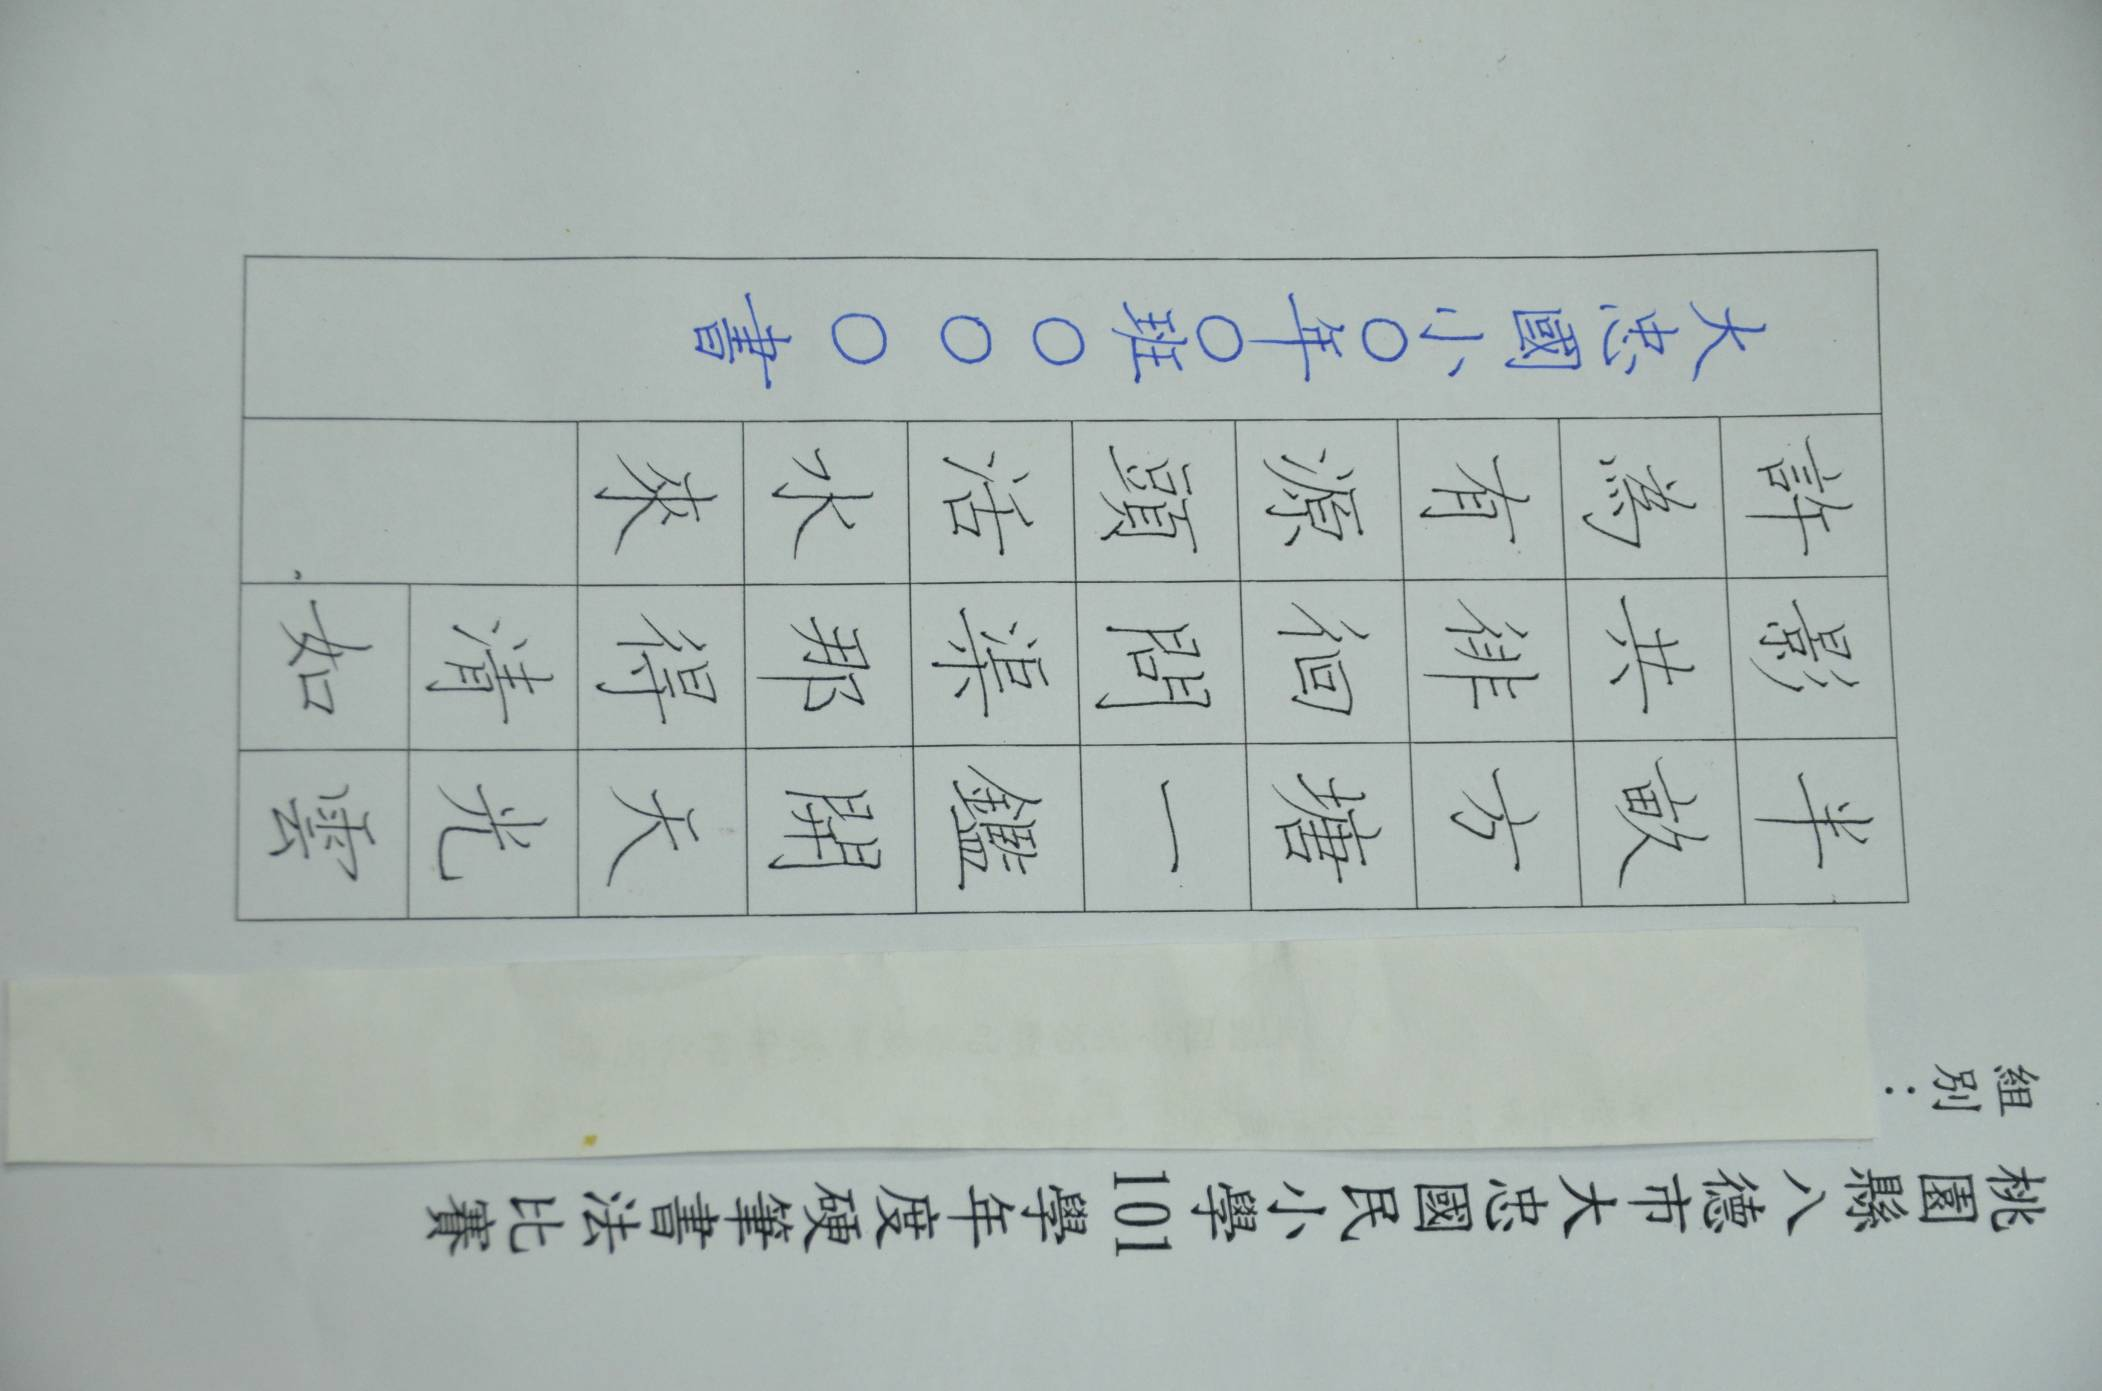 桃園縣八德市大忠國民小學101學年度硬筆書法比賽
組別：
半畝方塘一鑑開天光雲
影共徘徊問渠那得清如
許為有源頭活水來
大忠國小○年○班○○○書